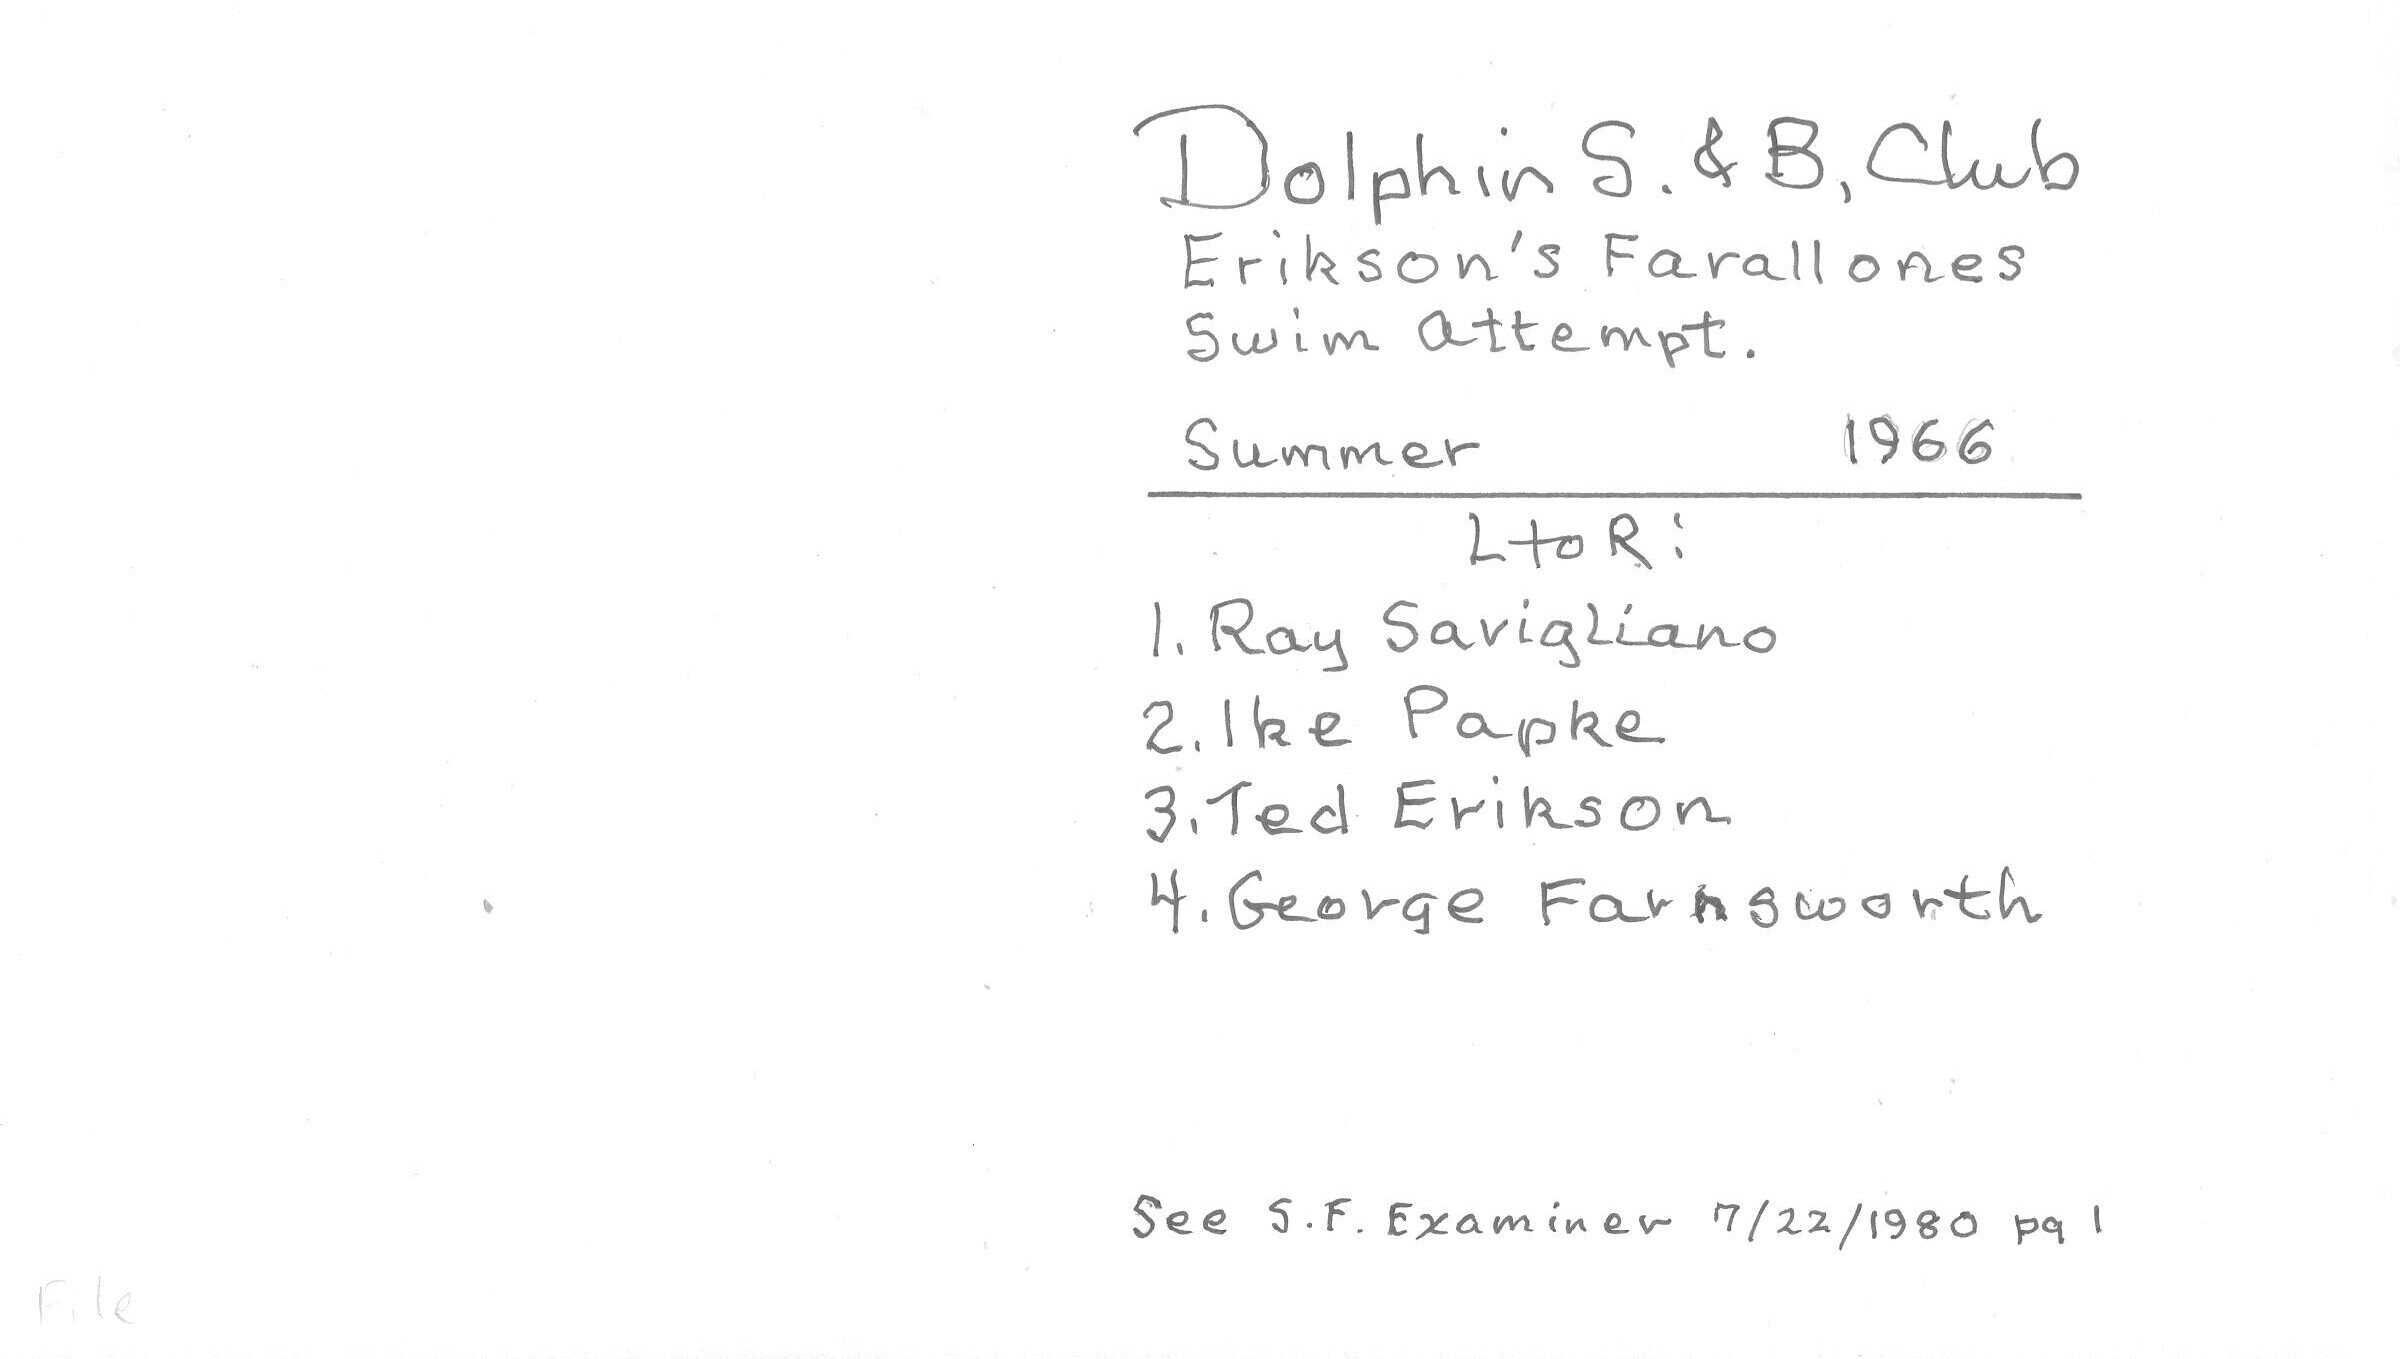 Dolphin S. & B, Club
Erikson's Farallones
Swim Attempt.
Summer 1966
L to R:
1. Ray Savigliano
2. Ike Papke
3. Ted Erikson
4. George Farnsworth
See S.F. Examiner 7/22/1980 pg 1
File